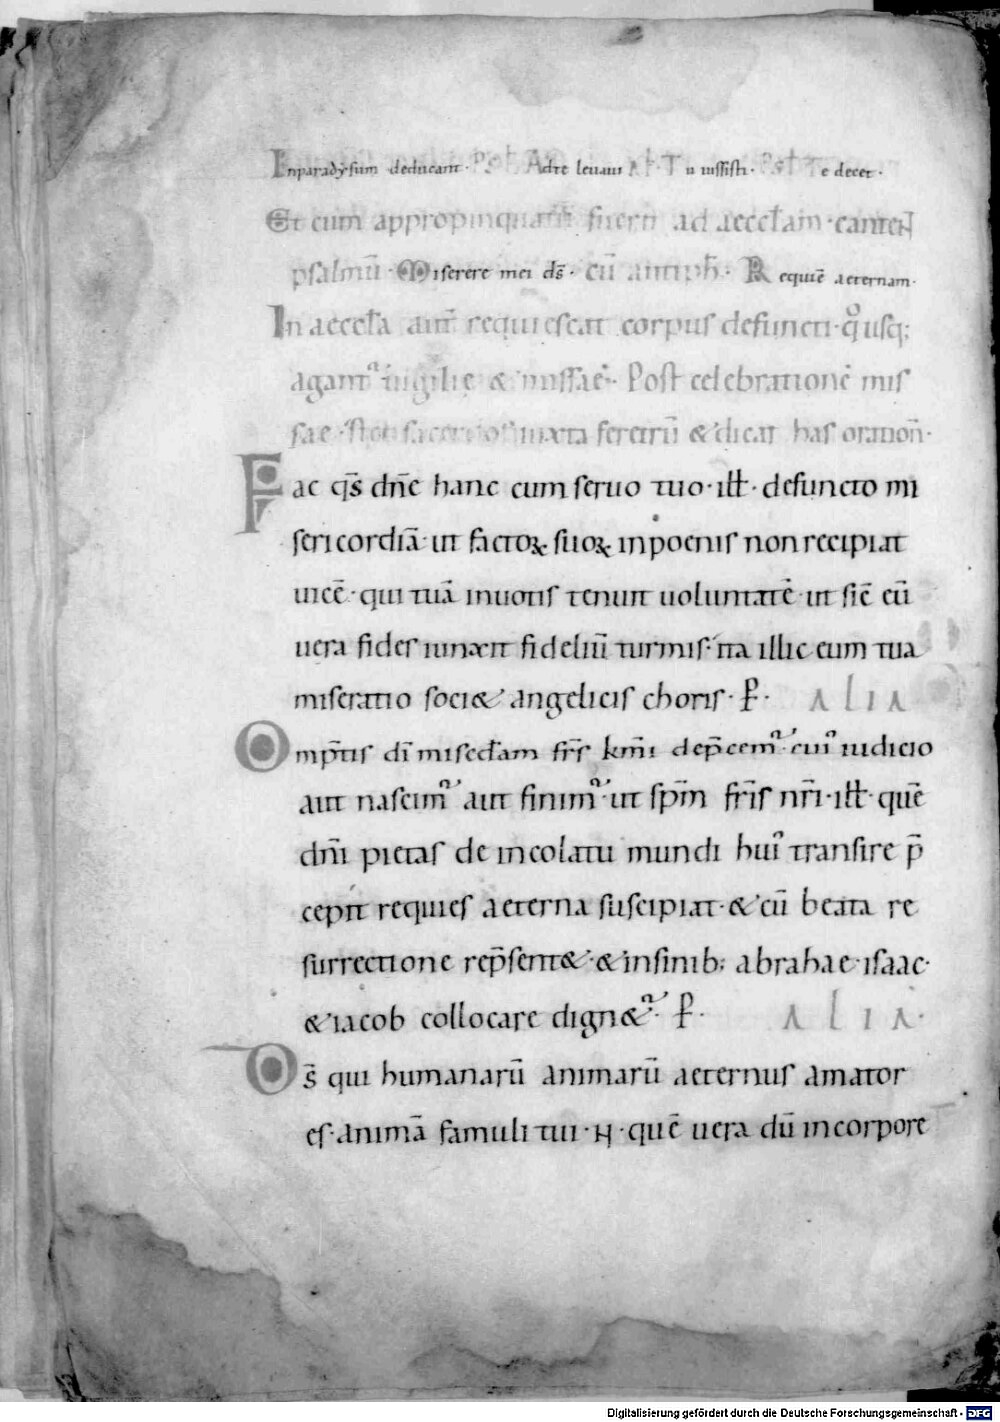 Inparadysum deducant · PSt Adte leuaui Pt · Tu iussisti · PSt Te decet ·
Et cum appropinquati fuerit ad aeccłam · canteN
psalmū · Miserere mei ds̄ · cū antiph̄ · Requiē aeternam ·
In aeccła aut̄ requiescat corpus defuncti · qͦ usq;
agant᷒ uigilie & missae · Post celebrationē mis
sae · stet sacerdos iuxta feretrū & dicat has oration̄ ·
Fac qs̄ dn̄e hanc cum seruo tuo · iłł · defuncto mi
sericordiā · ut factoꝝ suoꝝ inpoenis non recipiat
uicē · qui tuā inuotis tenuit uoluntatē · ut sic̄ eū
uera fides iunxit fideliū turmis · ita illic eum tua
miseratio soci& angelicis choris · P̄ · ALIA
Omp̄tis dī misedłam fr̄s km̄i dep̄cem᷒ · cui᷒ iudicio
aut nascim᷒ aut finim᷒ · ut sp̄m fr̄is nr̄i · iłł · quē
dn̄i pietas de incolatu mundi hui᷒ transire p̄
cepit requies aeterna suscipiat · & cū beata re
surrectione rep̄sent& · & insinib; abrahae · isaac ·
& iacob collocare dign&᷒ · P̄ · ALIA ·
Ds̄ qui humanarū animarū aeternus amator
es · animā famuli tui · N · quē uera dū incorpore
Digitalisierung gefördert durch die Deutsche Forschungsgemeinschaft - DFG